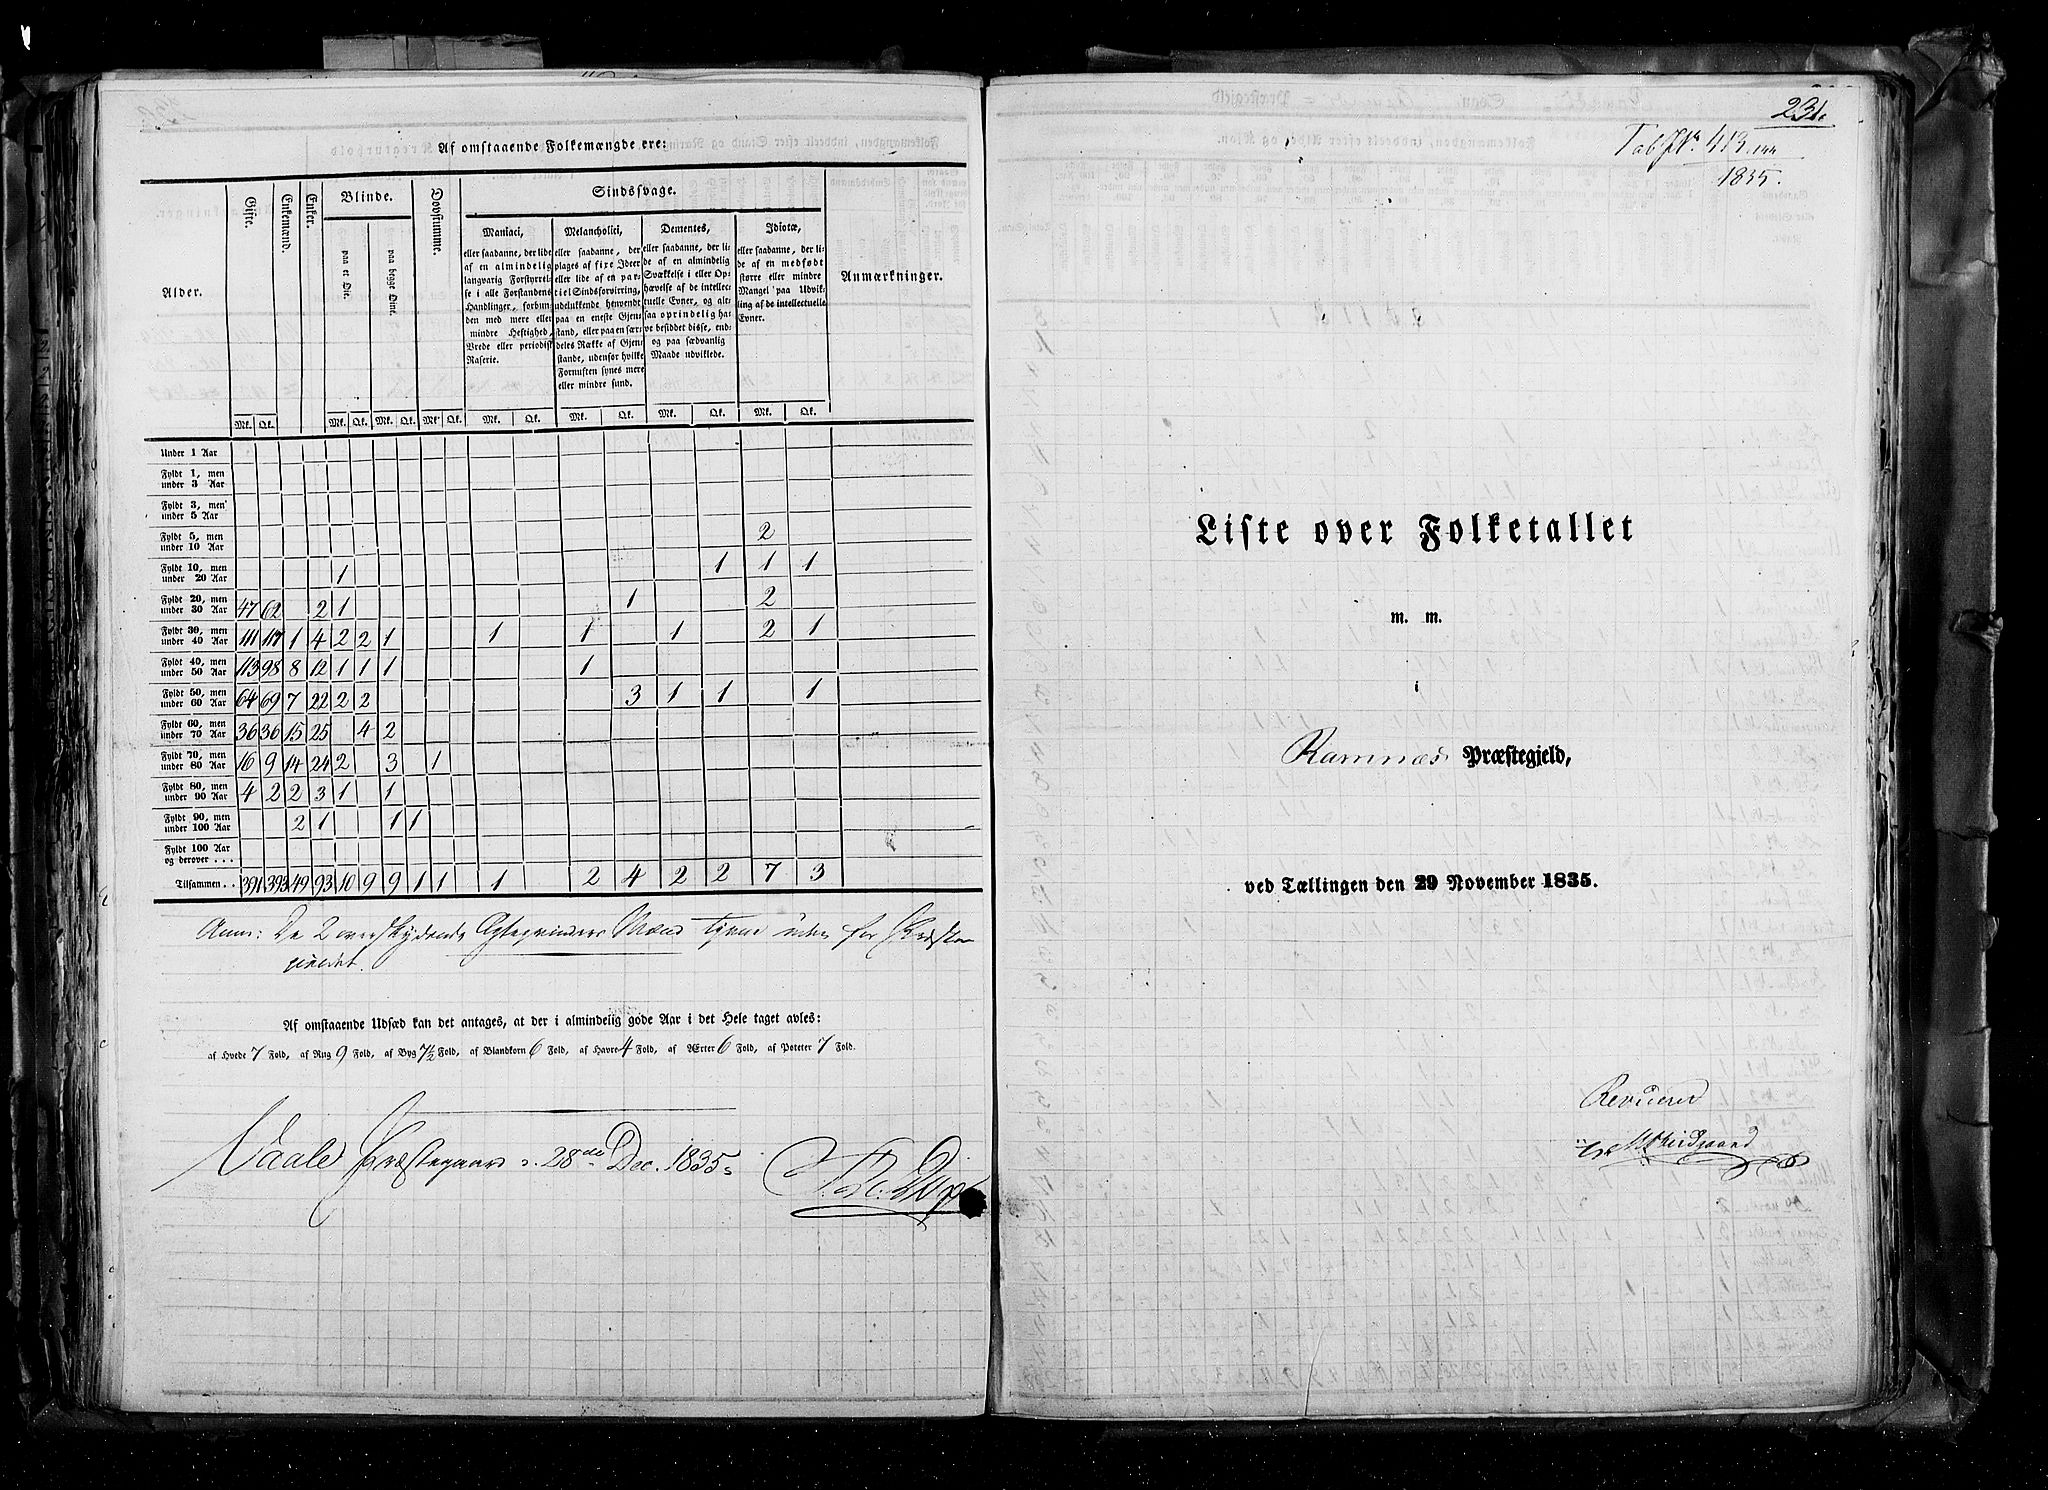 Af omstaaende Folkemængde ere:
Alder. Gifte. Enkemænd. Enker. Blinde. Døvstumme. Sindssvage. Anmærkninger.
paa et Øie. paa begge Øine.
Maniaci,
eller saadanne, der lide
af en almindelig
langvarig Forstyrrel-
se i alle Forstandens
Handlinger, forbun-
den med mere eller
mindre Heftighed,
Vrede eller periodisk
Raserie.
Melancholici,
eller saadanne, der
plages af fixe Ideer
eller lide af en par-
tiel Sindsforvirring,
udelukkende henvendt
paa en eneste Gjen-
stand, eller paa en sær-
deles Række af Gjen-
stande, udenfor hvilke
Fornuften synes mere
eller mindre sund.
Dementes,
eller saadanne, der li-
de af en almindelig
Svækkelse i eller Op-
hævelse af de intellec-
tuelle Evner, og alt-
saa oprindelig ha-
ve besiddet disse, end-
og paa sædvanlig
Maade udviklede.
Idiotæ,
eller saadanne, der li-
de af en medfødt
større eller mindre
Mangel paa Udvik-
ling af de intellectuelle
Evner.
Mk. Qk. Mk. Qk. Mk. Qk. Mk. Qk. Mk. Qk. Mk. Qk. Mk. Qk. Mk. Qk.
Under 1 Aar
Fyldt 1, men under 3 Aar
Fyldt 3, men under 5 Aar
Fyldt 5, men under 10 Aar 2
Fyldt 10, men under 20 Aar 1 1 1 1
Fyldt 20, men under 30 Aar 47 62 2 1 1 2
Fyldt 30, men under 40 Aar 111 117 1 4 2 2 1 1 1 1 2 1
Fyldt 40, men under 50 Aar 113 98 8 12 1 1 1 1
Fyldt 50, men under 60 Aar 64 69 7 22 2 2 3 1 1 1
Fyldt 60, men under 70 Aar 36 36 15 25 4 2
Fyldt 70, men under 80 Aar 16 9 14 24 2 3 1
Fyldt 80, men under 90 Aar 4 2 2 3 1 1
Fyldt 90, men under 100 Aar 2 1 1 1
Fyldt 100 Aar og derover . . .
Tilsammen . . 391 393 49 93 10 9 9 1 1 1 2 4 2 2 7 3
Anm: De 2 overskydende Ægteqvinders Mænd tjene uden for Præste
gieldet.
Af omstaaende Udsæd kan det antages, at der i almindelig gode Aar i det Hele taget avles:
af Hvede 7 Fold, af Rug 9 Fold, af Byg 7½ Fold, af Blandkorn 6 Fold, af Havre 4 Fold, af Ærter 6 Fold, af Poteter 7 Fold.
Vaale Præstegaard d. 28de Dec. 1835
231.
Tab. Nr. 413
1835.
Liste over Folketallet
m. m.
i
Ramnæs Præstegjeld,
ved Tællingen den 29 November 1835.
Revideret